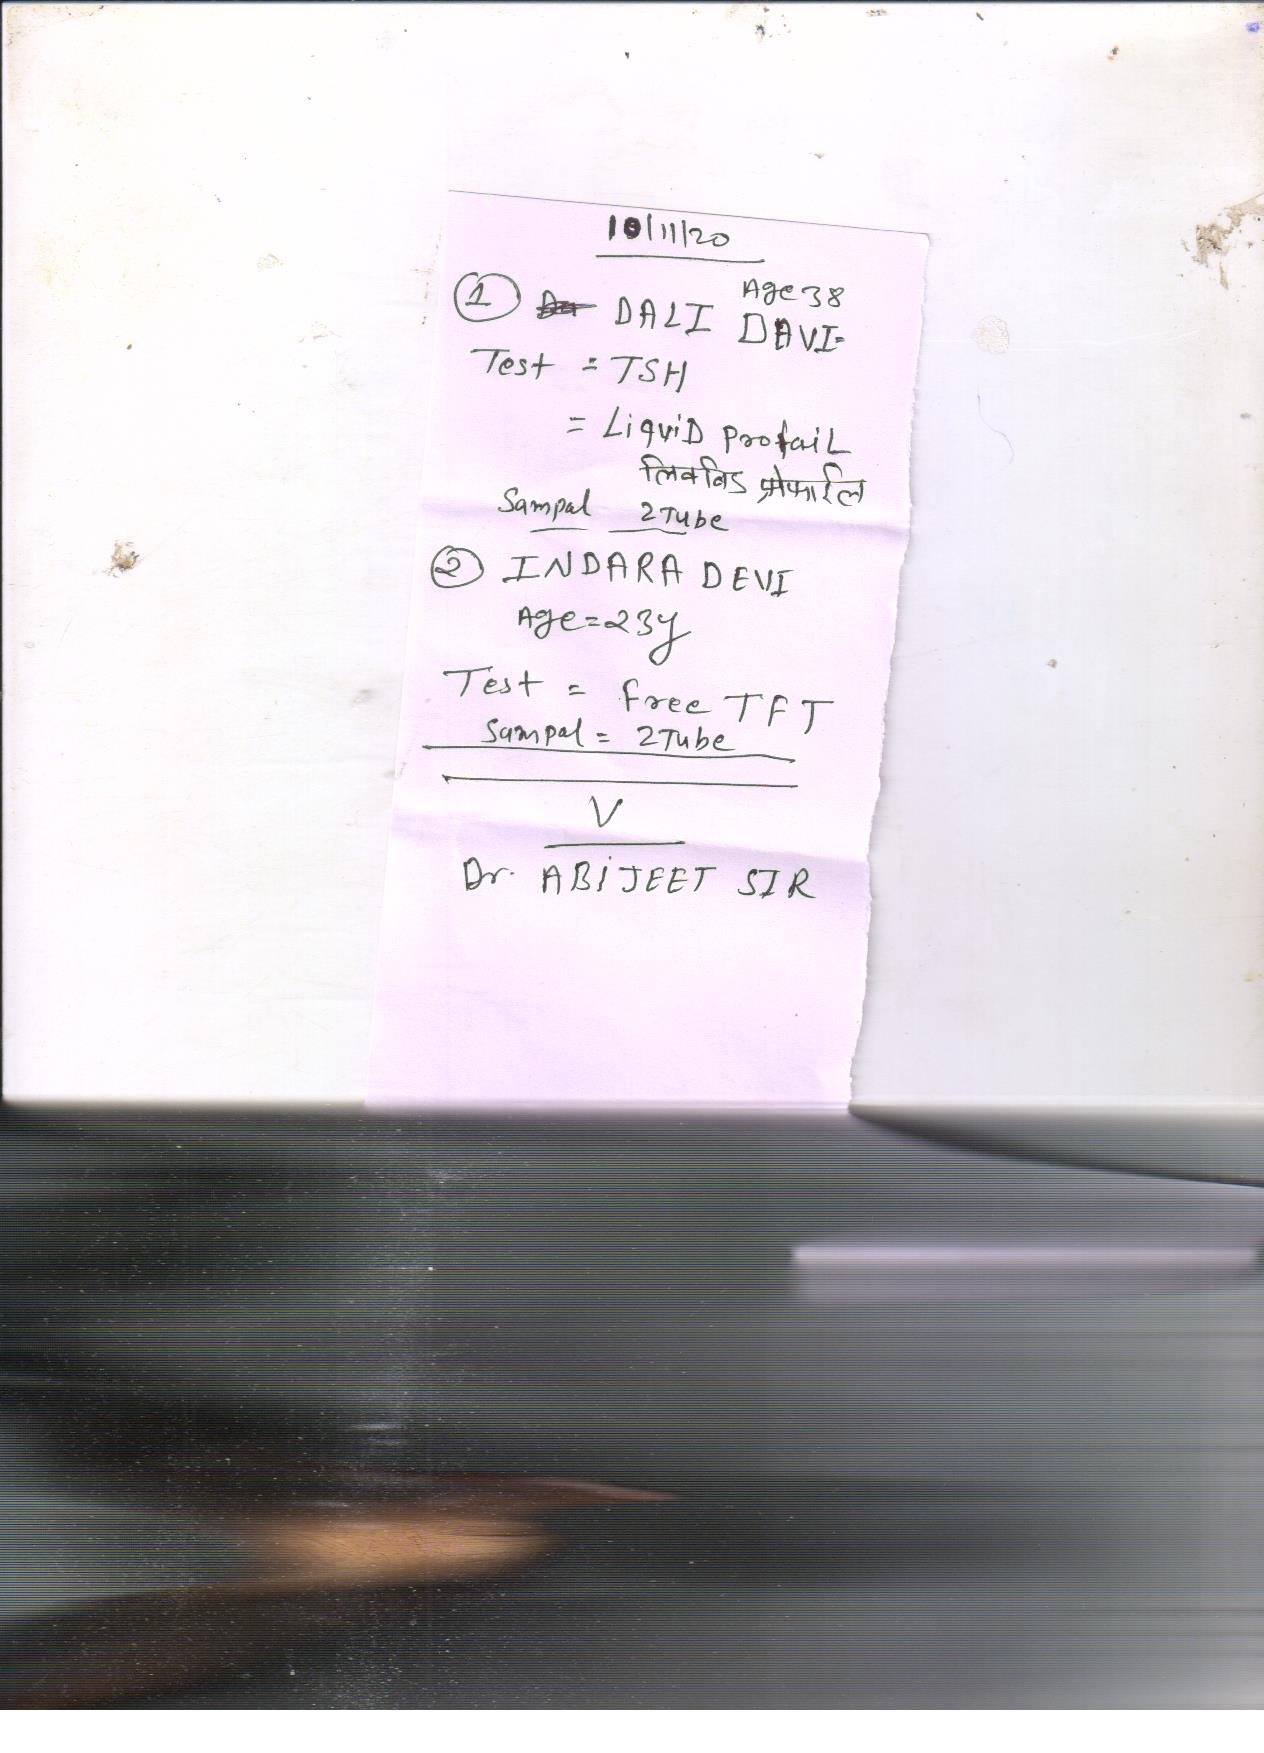 10/11/20
① DALI DAVI Age 38
Test = TSH
= LiquiD profaiL
लिक्विड प्रोफाईल
Sampal 2Tube
② INDARA DEVI
Age=23y
Test = free TFT
Sampal = 2Tube
V
Dr. ABIJEET SIR